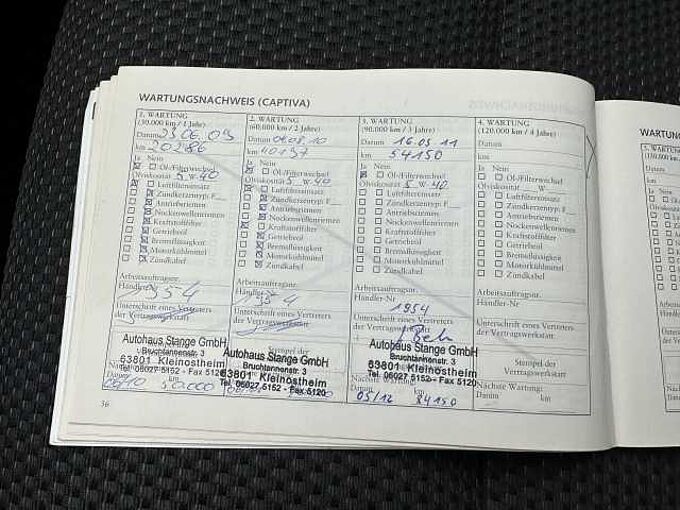 WARTUNGSNACHWEIS (CAPTIVA)
1. WARTUNG
(30.000 km / 1 Jahr)
Datum 23.06.09
km 20286
Ja Nein
Öl-/Filterwechsel
Ölviskosität 5 W 40
Luftfiltereinsatz
Zündkerzentyp: F
Antriebsriemen
Nockenwellenriemen
Kraftstofffilter
Getriebeöl
Bremsflüssigkeit
Motorkühlmittel
Zündkabel
Arbeitsauftragsnr.
Händler-Nr.
Unterschrift eines Vertreters
der Vertragswerkstatt
Autohaus Stange GmbH
Bruchtannenstr. 3
63801 Kleinostheim
Tel. 06027 5152 - Fax 5120
Datum
36
2. WARTUNG
(60.000 km / 2 Jahre)
Datum 04.08.10
km 40137
Ja Nein
Öl-/Filterwechsel
Ölviskosität 5 W 40
Luftfiltereinsatz
Zündkerzentyp: F
Antriebsriemen
Nockenwellenriemen
Kraftstofffilter
Getriebeöl
Bremsflüssigkeit
Motorkühlmittel
Zündkabel
Arbeitsauftragsnr.
Händler-Nr.
Unterschrift eines Vertreters
der Vertragswerkstatt
Stempel der
Autohaus Stange GmbH
Bruchtannenstr. 3
63801 Kleinostheim
Tel. 06027 5152 - Fax 5120
3. WARTUNG
(90.000 km / 3 Jahre)
Datum 16.05.11
km 54150
Ja Nein
Öl-/Filterwechsel
Ölviskosität 5 W 40
Luftfiltereinsatz
Zündkerzentyp: F
Antriebsriemen
Nockenwellenriemen
Kraftstofffilter
Getriebeöl
Bremsflüssigkeit
Motorkühlmittel
Zündkabel
Arbeitsauftragsnr.
Händler-Nr.
1954
Unterschrift eines Vertreters
der Vertragswerkstatt
Autohaus Stange GmbH
Bruchtannenstr. 3
63801 Kleinostheim
Tel. 06027 5152 - Fax 5120
Nächste Wartung:
Datum km
05/12 84150
4. WARTUNG
(120.000 km / 4 Jahre)
Datum
km
Ja Nein
Öl-/Filterwechsel
Ölviskosität W
Luftfiltereinsatz
Zündkerzentyp: F
Antriebsriemen
Nockenwellenriemen
Kraftstofffilter
Getriebeöl
Bremsflüssigkeit
Motorkühlmittel
Zündkabel
Arbeitsauftragsnr.
Händler-Nr.
Unterschrift eines Vertreters
der Vertragswerkstatt
Stempel der
Vertragswerkstatt
Nächste Wartung:
Datum km